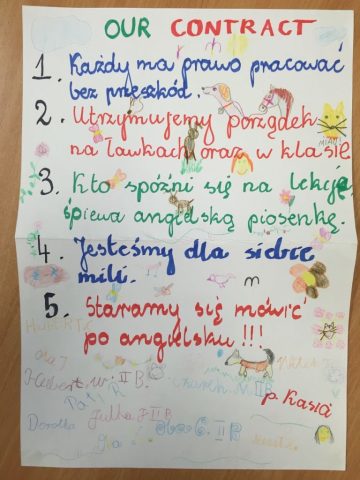 OUR CONTRACT
1. Każdy ma prawo pracować
bez przeszkód.
2. Utrzymujemy porządek
na ławkach oraz w klasie
3. Kto spóźni się na lekcję,
śpiewa angielską piosenkę.
4. Jesteśmy dla siebie
mili.
5. Staramy się mówić
po angielsku!!!
p. Kasia
Herbert. W. II B.
Dorotka Julka II B
Ola G. II B